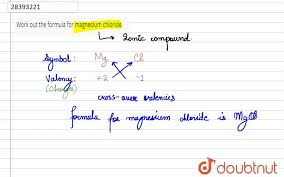 28393221
Work out the formula for magnesium chloride.
Ionic compound
Symbol: Mg Cl
Valency: +2 -1
(Charges)
cross-over valencies
formula for magnesium chloride is MgCl
doubtnut